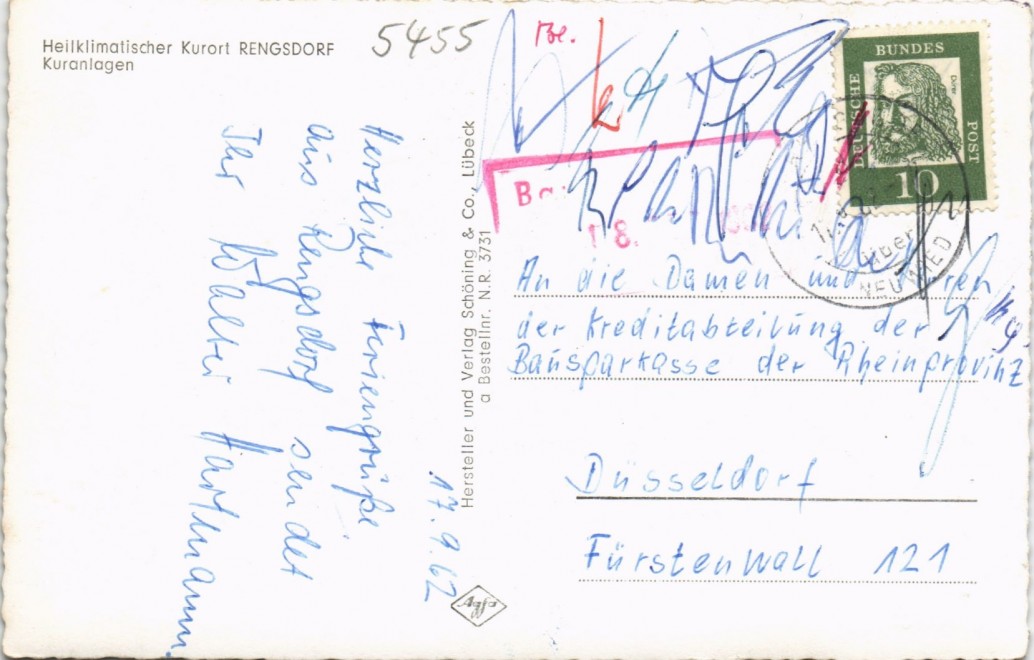 Heilklimatischer Kurort RENGSDORF
Kuranlagen
5455
Be.
DEUTSCHE
BUNDES
POST
Dürer
10
18.
über
NEUWIED
2
17.9.62
Herzliche Feriengrüße
aus Rengsdorf sendet
Ihr Walter Hartmann
Hersteller und Verlag Schöning & Co., Lübeck
a Bestellnr. N.R. 3731
Agfa
An die Damen und Herren
der Kreditabteilung der
Bausparkasse der Rheinprovinz
Düsseldorf
Fürstenwall 121